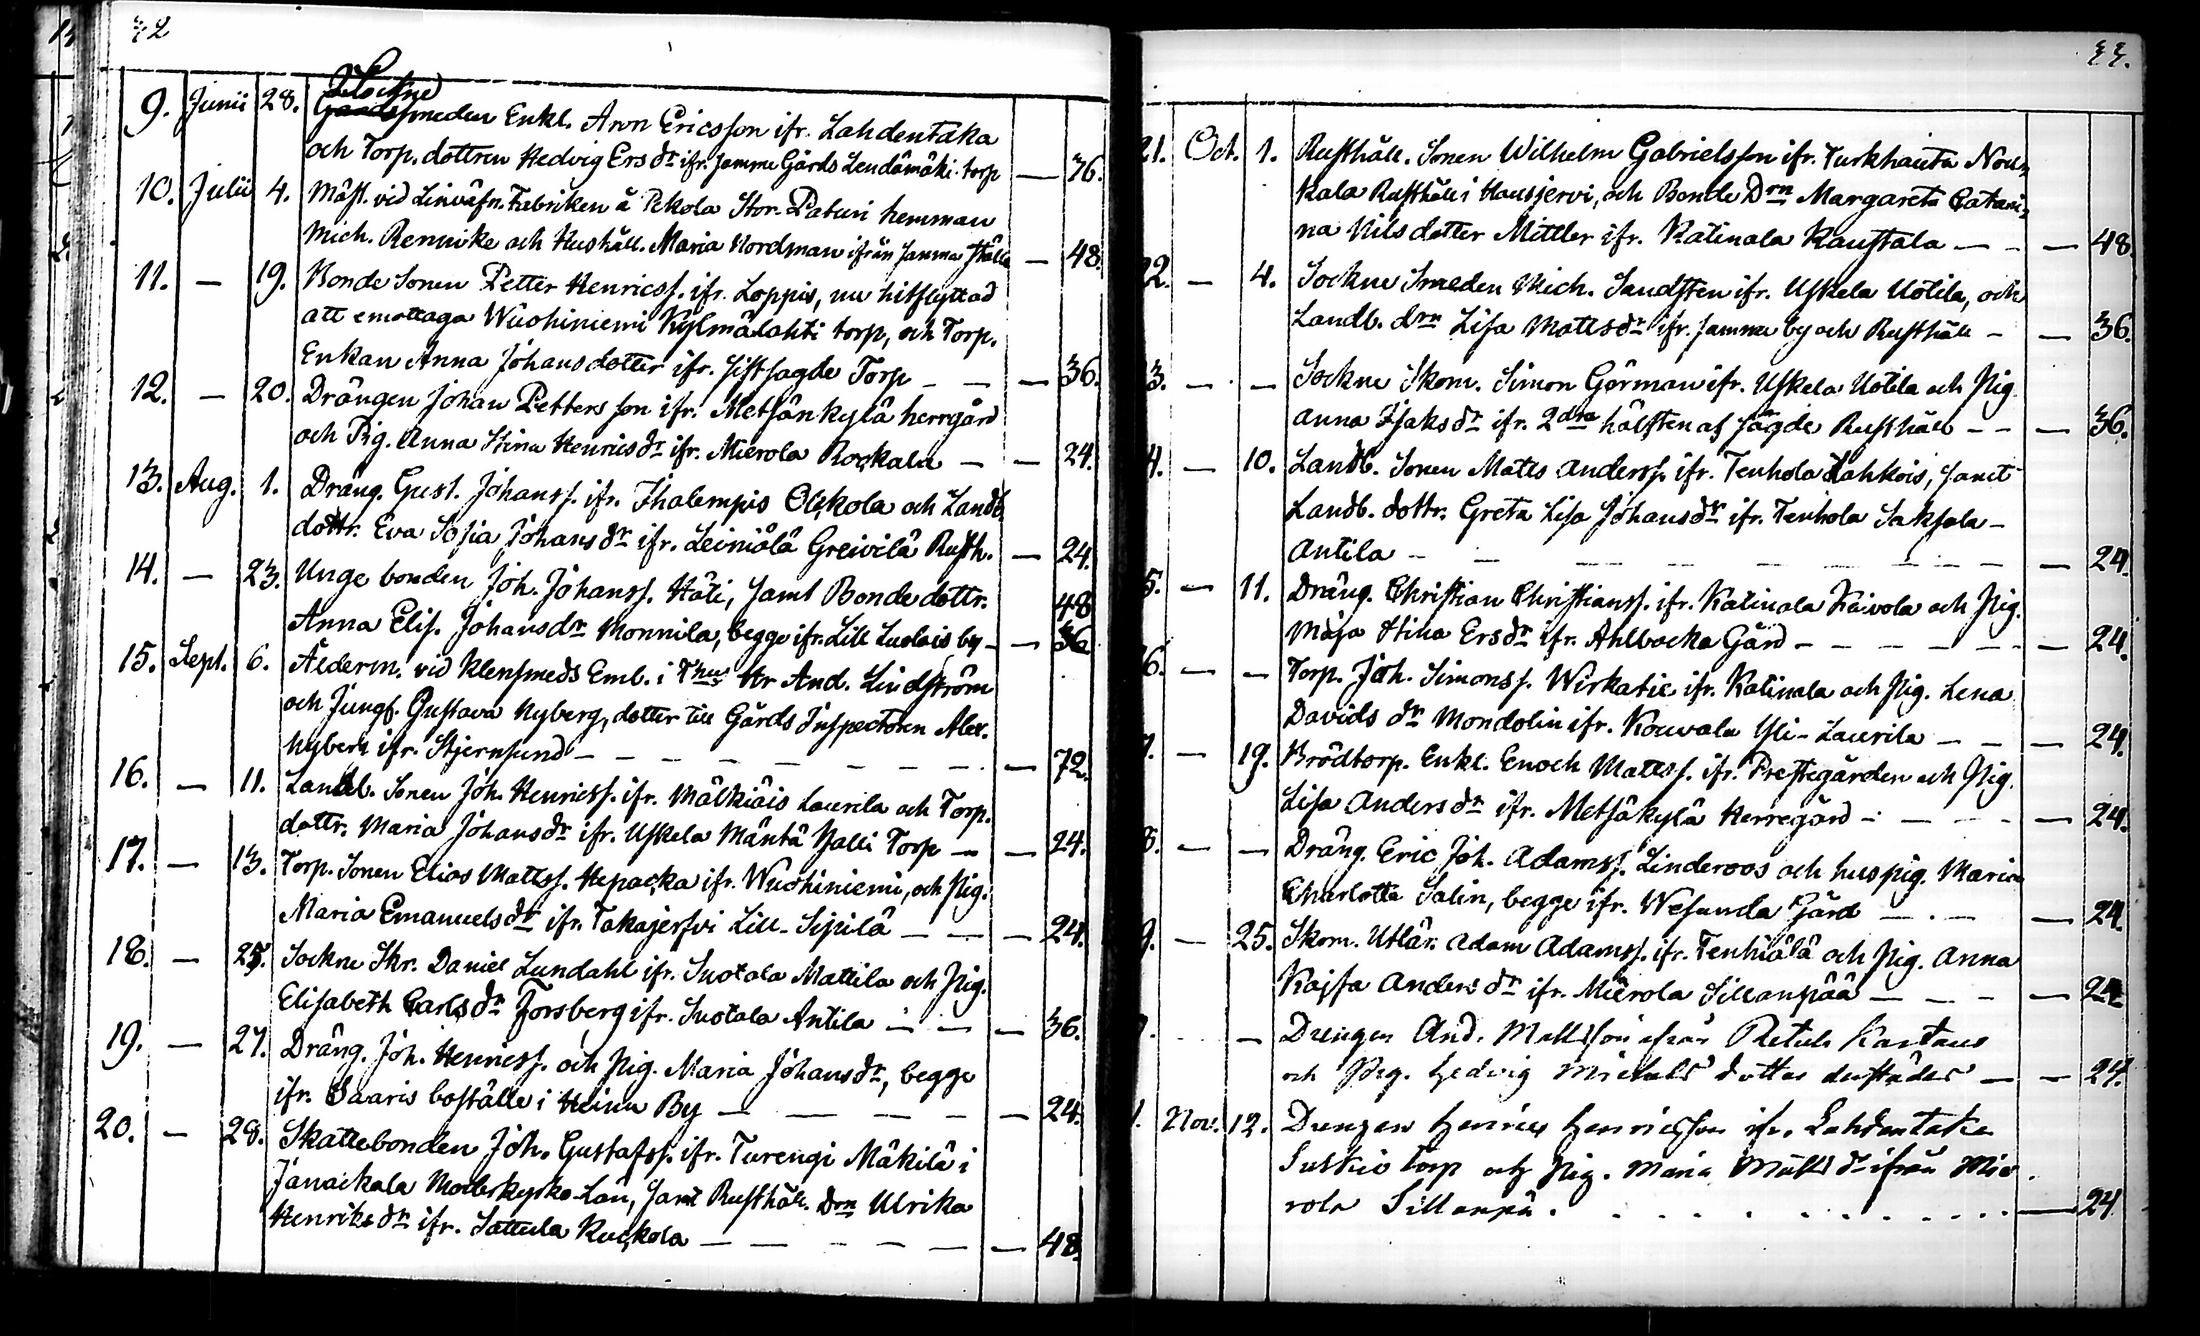 32
9. Junii 28. Sockne
Gårdssmeden Enkl. Aron Ericsson ifr. Lahdentaka
och Torp. dottren Hedvig Ersdr ifr. samma Gårds Lendämäki torp — 36.
10. Julii 4. Mäst. vid Linväfn. Fabriken å Pekola Stor-Paturi hemman
Mich. Rennike och Hushåll. Maria Nordman ifrån samma ställe — 48.
11. — 19. Bonde Sonen Petter Henricss. ifr. Loppis, nu hitflyttad
att emottaga Wuohiniemi Kylmälahti torp, och Torp.
Enkan Anna Johansdotter ifr. sistsagde Torp — — — 36.
12. — 20. Drängen Johan Pettersson ifr. Metsänkylä herrgård
och Pig. Anna Stina Henricsdr ifr. Mierola Rockala — — 24.
13. Aug. 1. Dräng. Gust. Johanss. ifr. Ihalempis Olckola och Landb.
dottr. Eva Sofia Johansdr ifr. Leiniälä Greivilä Rusth. — 24.
14. — 23. Unge bonden Joh. Johanss. Häti, samt Bonde dottr. 48
Anna Elis. Johansdr Monnila, begge ifr. Lill Luolais by — — 36
15. Sept. 6. Ålderm. vid Klensmeds Emb. i Thus Hr And. Lindström
och Jungf. Gustava Nyberg, dotter till Gårds Inspectoren Alex.
Nyberg ifr. Stjernsund — — — — — — — 72.
16. — 11. Landb. Sonen Joh. Henricss. ifr. Mälkiäis Laurila och Torp.
dottr. Maria Johansdr ifr. Uskela Mäntä Torp — — 24.
17. — 13. Torp. Sonen Elias Matss. Hepacka ifr. Wuohiniemi, och Pig.
Maria Emanuelsdr ifr. Takajerfvi Lill-Sipilä — — — 24.
18. — 25. Sockne Skr. Daniel Lundahl ifr. Suotala Mattila och Pig.
Elisabeth Carlsdr Forsberg ifr. Suotala Antila — — — 36.
19. — 27. Dräng. Joh. Henricss. och Pig. Maria Johansdr, begge
ifr. Saaris boställe i Heinu By — — — — — 24.
20. — 28. Skattebonden Joh. Gustafss. ifr. Turengi Mäkilä i
Janackala Moderkyrko-Län, samt Rusthåll. drn Ulrika
Henriksdr ifr. Sattula Kuckola — — — — — 48.
33.
21. Oct. 1. Rusthåll. Sonen Wilhelm Gabrielsson ifr. Turkhauta Nou-
kala Rusthåll i Hausjervi, och Bonde Drn Margareta Catari-
na Nilsdotter Mittler ifr. Katinala Kaustala — — — 48.
22. — 4. Sockne Smeden Mich. Sandsten ifr. Uskela Uotila, och
Landb. drn Lisa Mattsdr ifr. samma by och Rusthåll — — 36.
3. — — Sockne Skom. Simon Görman ifr. Uskela Uotila och Pig.
Anna Isaksdr ifr. 2dra hälften af sagde Rusthåll — — — 36.
4. — 10. Landb. Sonen Matts Anderss. ifr. Tenhola Lahkois, samt
Landb. dottr. Greta Lisa Johansdr ifr. Tenhola Saksala —
Antila — — — — — — — 24.
5. — 11. Dräng. Christian Christianss. ifr. Katinala Kaivola och Pig.
Maja Stina Ersdr ifr. Ahlbacka Gård — — — — — 24.
6. — — Torp. Joh. Simonss. Wirkatie ifr. Katinala och Pig. Lena
Davidsdr Mondolin ifr. Kouvala Yli-Laurila — — — 24.
7. — 19. Brödtorp. Enkl. Enoch Matss. ifr. Prestegården och Pig.
Lisa Andersdr ifr. Metsäkylä Herregård — — — — 24.
8. — — Dräng. Eric Joh. Adamss. Linderoos och huspig. Maria
Charlotta Salin, begge ifr. Wesunda Gård — — — 24.
9. — 25. Skom. Utlär. Adam Adamss. ifr. Tenhiälä och Pig. Anna
Kajsa Andersdr ifr. Mierola Sillanpää — — — — 24.
— Drengen And. Mattsson ifrån Retula Kartano
och Pig. Hedvig Michelsdotter derstädes — — 24.
1. Nov. 12. Drengen Henric Henricsson ifr. Lahdentaka
Torp och Pig. Maria Mattsdr ifrån Mie
rola Sillanpä. — 24